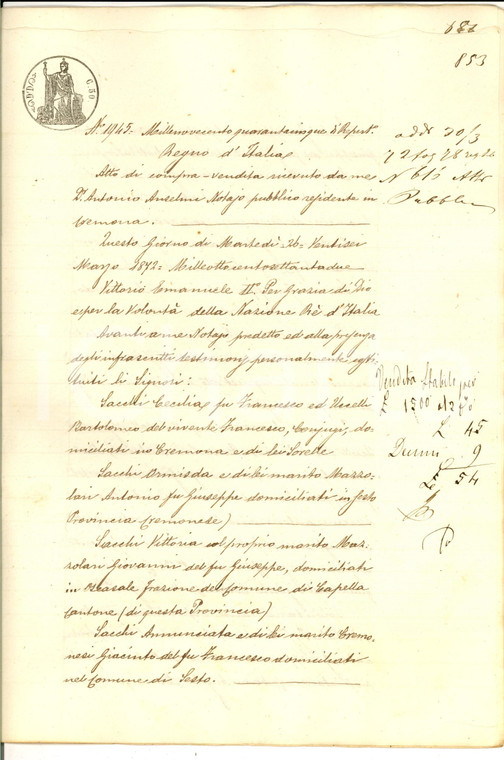 853
N° 1945= Millenovecento quarantacinque di Repert.°
Regno d'Italia
Atto di compra-vendita ricevuto da me
D.r Antonio Anselmi Notajo pubblico residente in
Cremona.
Questo Giorno di Martedì 26= Ventisei
Marzo 1872= Milleottocentosettantadue
Vittorio Emanuele II.° Per Grazia di Dio
e per la Volontà della Nazione Rè d'Italia
Avanti a me Notajo predetto ed alla presenza
degl'infrascritti testimonj personalmente costi
tuiti li Signori:
Sacchi Cecilia fu Francesco ed Uccelli
Bartolomeo del vivente Francesco, Conjugi, do-
miciliati in Cremona e di lei Sorelle
Sacchi Ormisda e di lei marito Mazzo-
lari Antonio fu Giuseppe domiciliati in Sesto
Provincia Cremonese)
Sacchi Vittoria col proprio marito Maz-
zolari Giovanni del fu Giuseppe, domiciliati
in Casale frazione del Comune di Capella
Cantone (di questa Provincia)
Sacchi Annunciata e di lei marito Cremo-
nesi Giacinto del fu Francesco domiciliati
nel Comune di Sesto.
addì 30/3
72
N° 615 Atti
Pubbl
Vendita Stabile per
£ 1500
£ 45
Decimi 9
£ 54